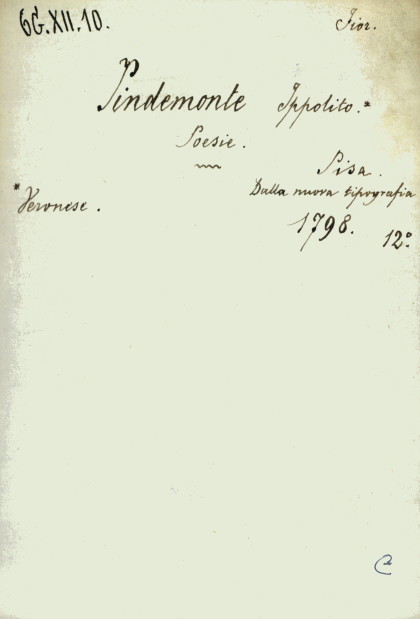 6G.XII.10. Fior.
Pindemonte Ippolito.*
Poesie.
Pisa.
*Veronese. Dalla nuova tipografia
1798. 12°